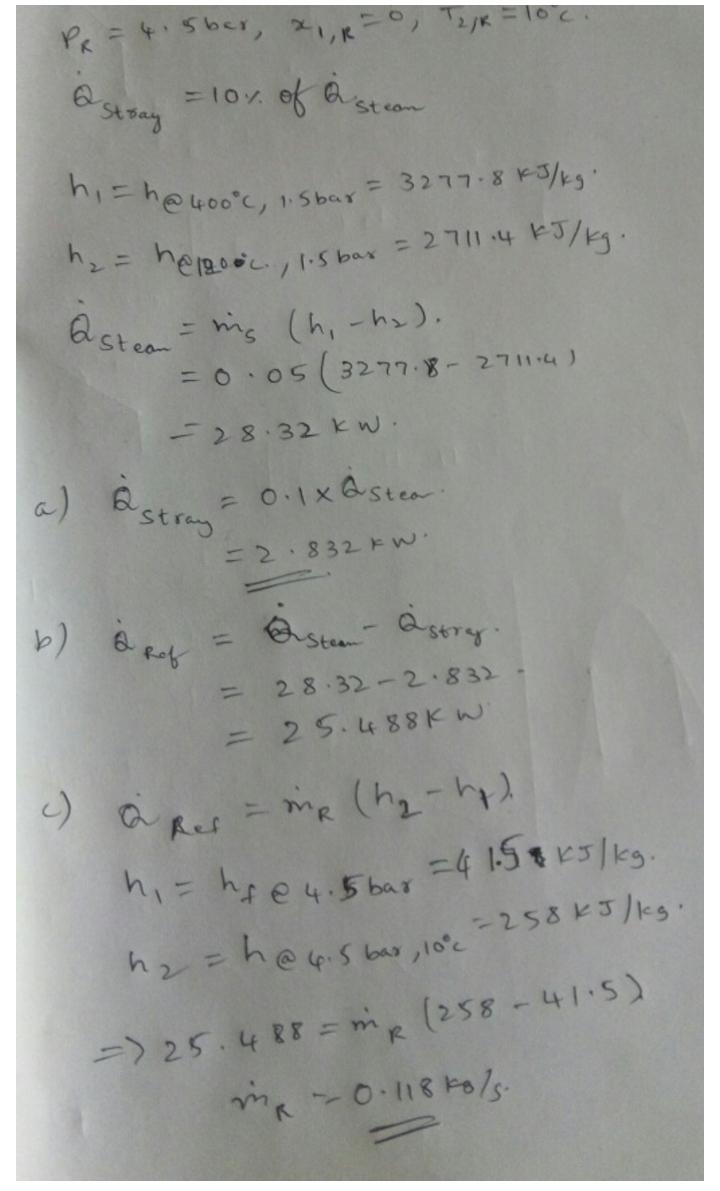 P_R = 4.5 bar, x_1,R = 0, T_2,R = 10°C.
Q̇_Stray = 10% of Q̇_steam
h₁ = h@400°C, 1.5bar = 3277.8 KJ/kg.
h₂ = h@120°C., 1.5 bar = 2711.4 KJ/kg.
Q̇_Steam = ṁ_s (h₁ - h₂).
= 0.05(3277.8 - 2711.4)
= 28.32 KW.
a) Q̇_Stray = 0.1 x Q̇_Stea.
= 2.832 KW.
b) Q̇_Ref = Q̇_Steam - Q̇_stray.
= 28.32 - 2.832
= 25.488 KW
c) Q̇_Ref = ṁ_R (h₂ - h₁).
h₁ = h_f @ 4.5 bar = 41.5 KJ/kg.
h₂ = h@ 4.5 bar, 10°C = 258 KJ/kg.
=> 25.488 = ṁ_R (258 - 41.5)
ṁ_R = 0.118 kg/s.